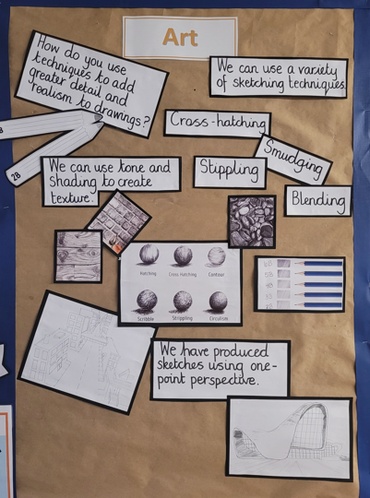 Art
How do you use
techniques to add
greater detail and
realism to drawings?
We can use a variety
of sketching techniques.
Cross-hatching
Smudging
Stippling
Blending
2B
We can use tone and
shading to create
texture.
Hatching Cross Hatching Contour
Scribble Stippling Circulism
We have produced
sketches using one-
point perspective.